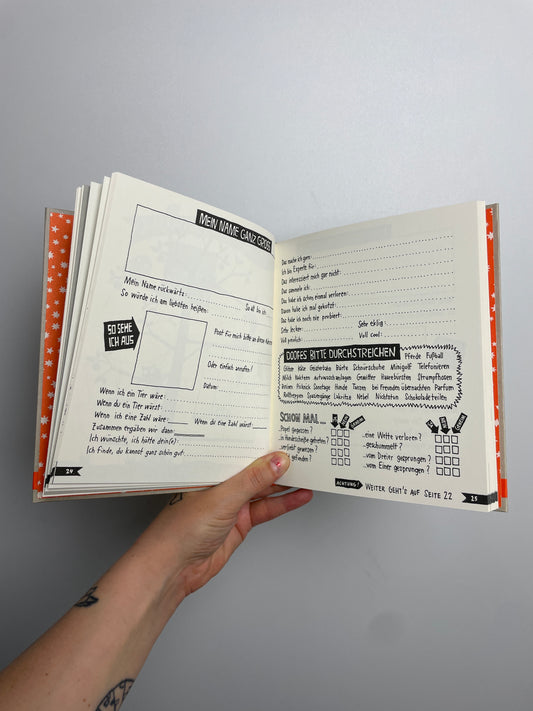 MEIN NAME GANZ GROSS
Mein Name rückwärts:
So alt bin ich:
So würde ich am liebsten heißen:
SO SEHE
ICH AUS
Post für mich bitte an diese Adresse:
Oder einfach anrufen!
Datum:
Wenn ich ein Tier wäre:
Wenn du ein Tier wärst:
Wenn ich eine Zahl wäre:
Wenn du eine Zahl wärst:
Zusammen ergäben wir dann
Ich wünschte, ich hätte dein(e):
Ich finde, du kannst ganz schön gut:
24
Das mache ich gern:
Ich bin Experte für:
Das interessiert mich gar nicht:
Das sammele ich:
Das habe ich schon einmal verloren:
Davon habe ich mal gekotzt:
Das habe ich noch nie probiert:
Sehr lecker:
Sehr eklig:
Voll peinlich:
Voll cool:
DOOFES BITTE DURCHSTREICHEN
Pferde Fußball
Glitzer Käse Geisterbahn Bärte Schnürschuhe Minigolf Telefonieren
Milch Nüchtern Autowaschanlagen Gewitter Haarebürsten Strumpfhosen
Picknick Sonntage Hunde Tanzen bei Freunden übernachten Parfüm
Rolltreppen Spaziergänge Lakritze Nebel Nichtstun Schokoladeneilen
SCHON MAL...
Popel gegessen?
im Handschuhfach
verliebt gewesen?
gefunden?
...eine Wette verloren?
...geschummelt?
...vom Dreier gesprungen?
...vom Einer gesprungen?
ACHTUNG!
WEITER GEHT'S AUF SEITE 22
25